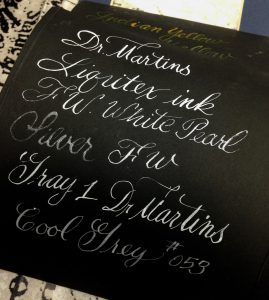 Indian Yellow
Yellow
Dr. Martins
Liquitex ink
F.W. White Pearl
Silver F.W
Gray 1 Dr. Martins
Cool Grey #053